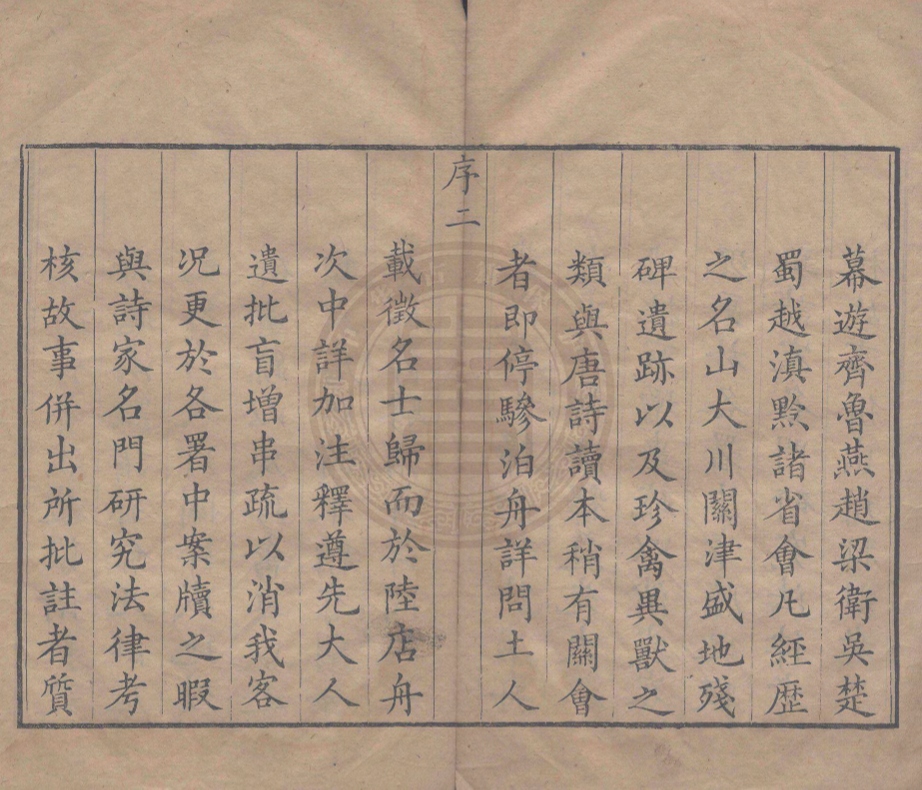 幕遊齊魯燕趙梁衛吳楚
蜀越滇黔諸省會凡經歷
之名山大川關津盛地殘
碑遺跡以及珍禽異獸之
類與唐詩讀本稍有關會
者即停驂泊舟詳問土人
序二
載徵名士歸而於陸店舟
次中詳加注釋遵先大人
遺批盲增串疏以消我客
况更於各署中案牘之暇
與詩家名門研究法律考
核故事併出所批註者質